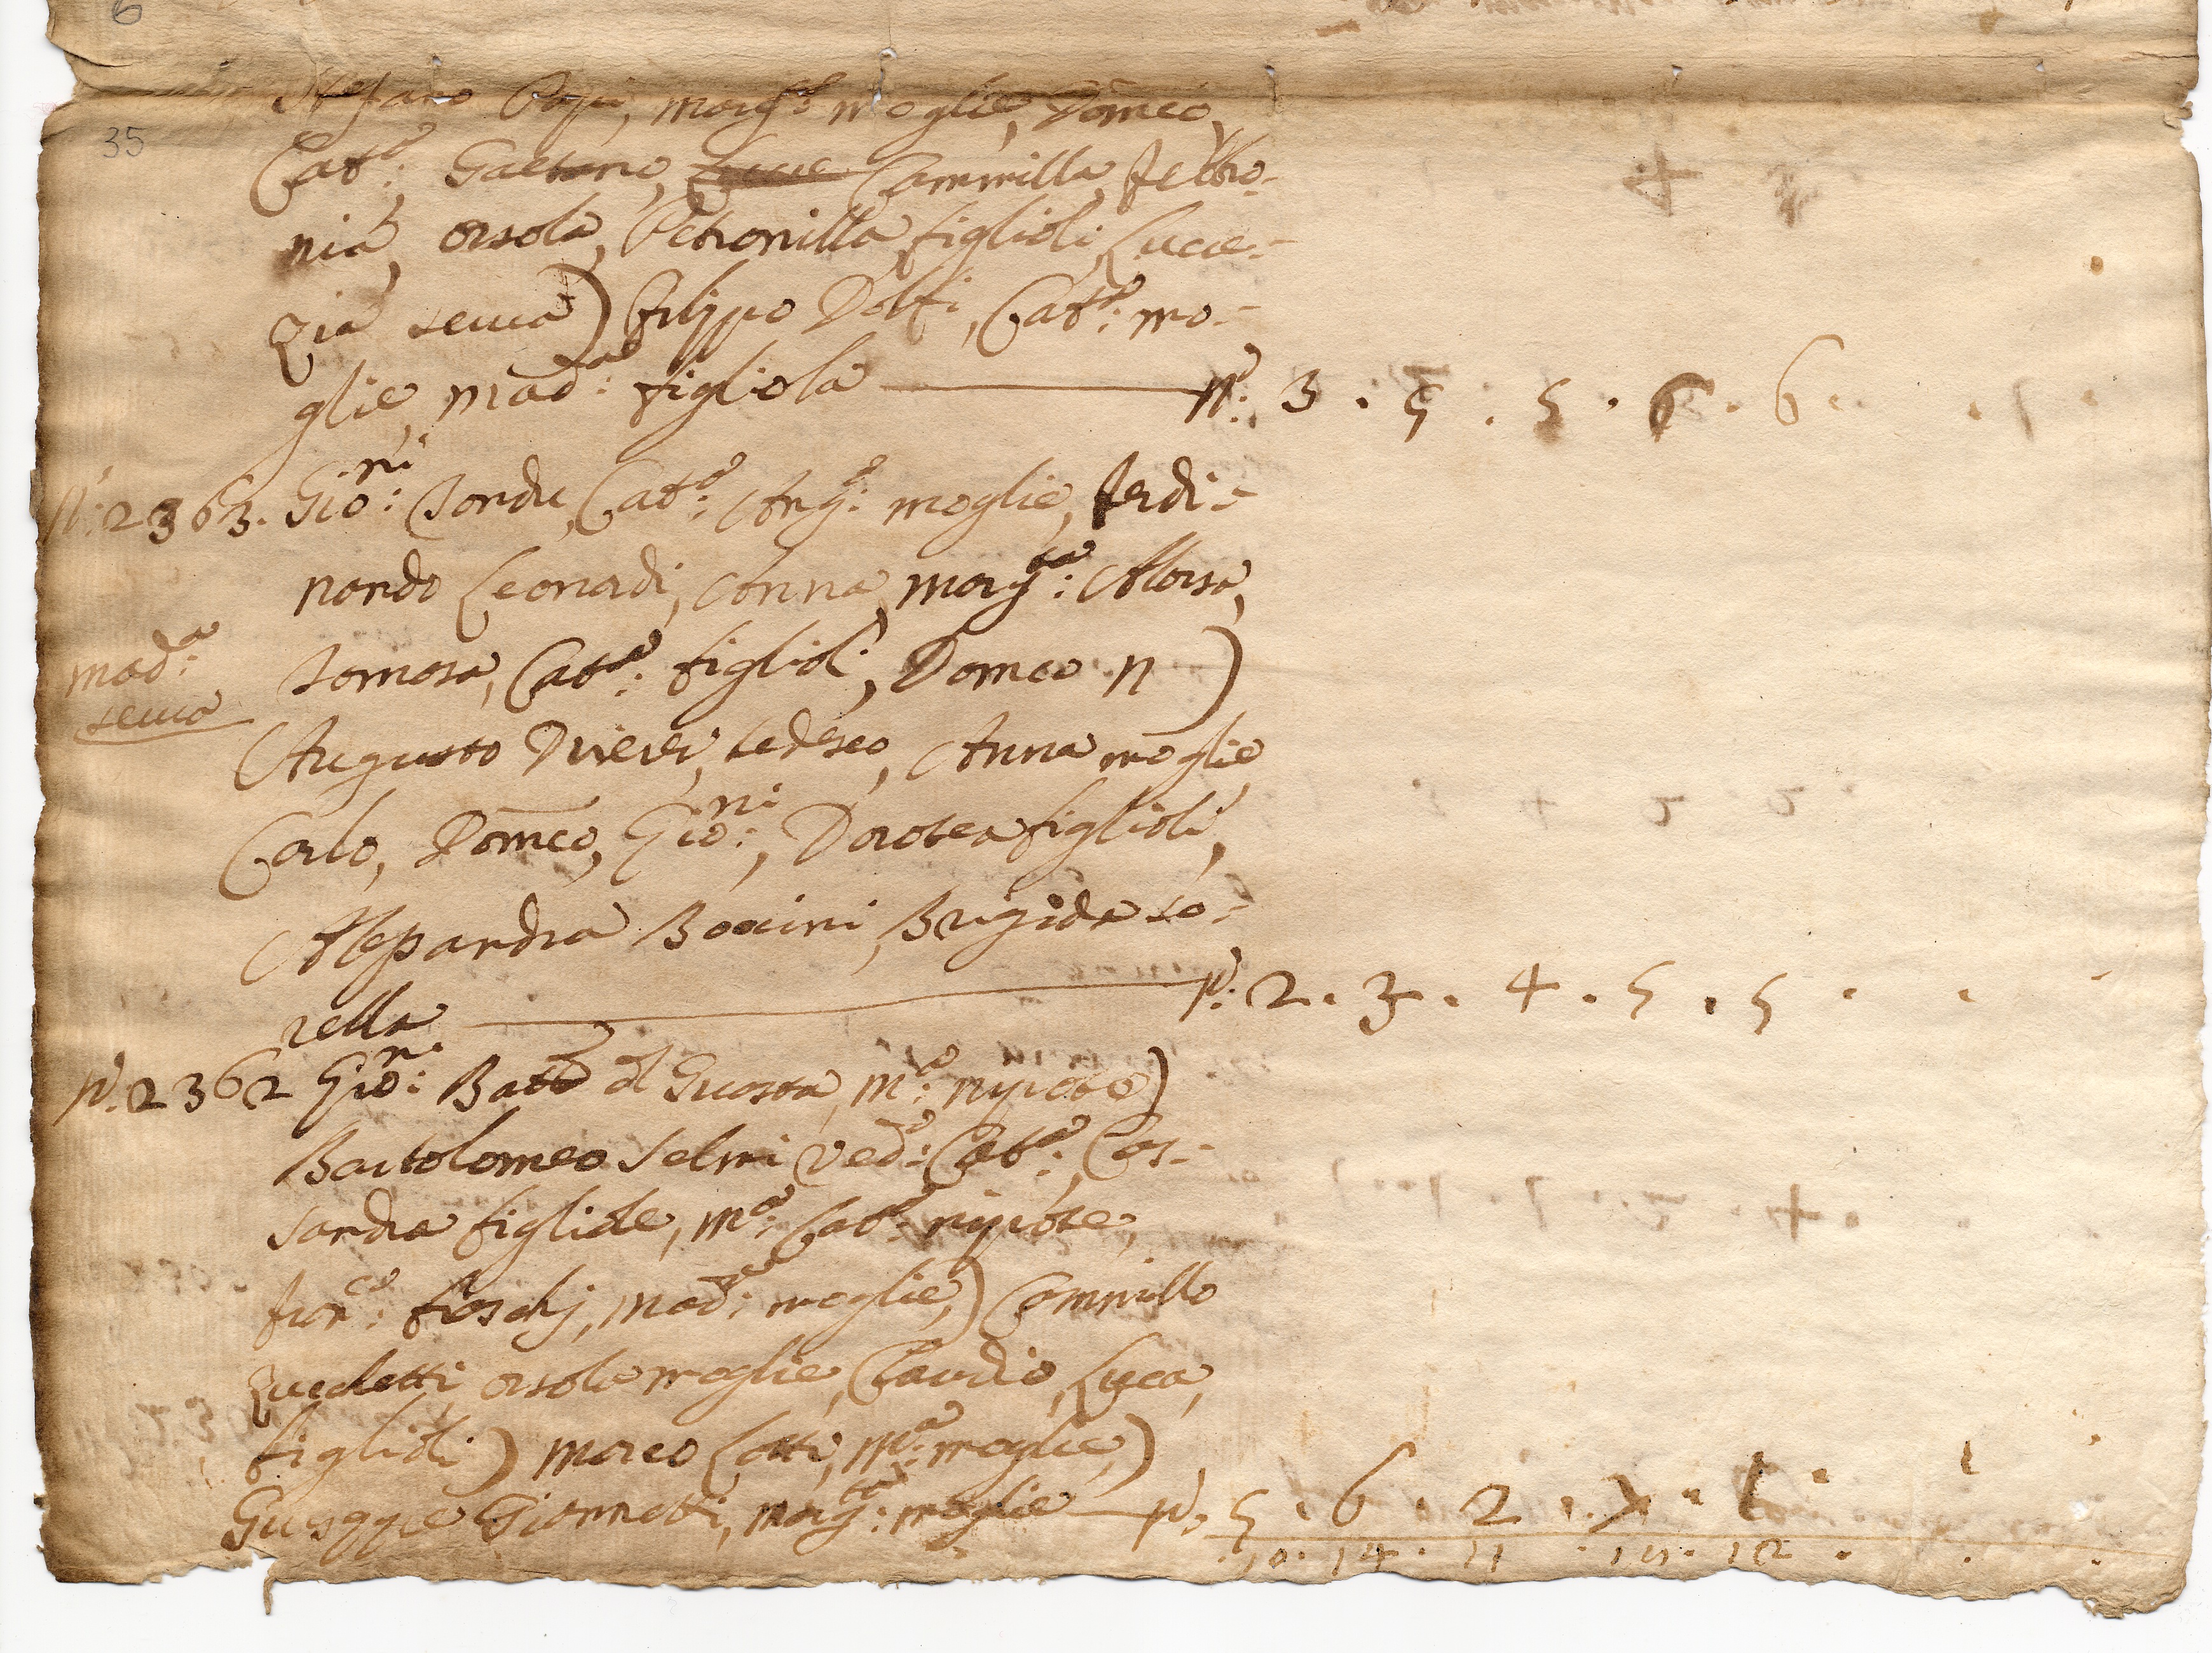 6
35
Stefano Popi, marg:ta moglie, Dom̄co,
Catta: Gaetano, Cammilla, febbro-
nia, orsola, Petronilla figlioli, Lucre-
zia serua) filippo Dolfi, Catta: mo-
glie, mad:na figliola no: 3 . 5 . 5 . 6 . 6 .
no: 2363. Gio:ni Catta: Ang:a moglie, ferdi-
nando Leonardi, Anna, marg:ta
Tomosa, Catta: figlioli, Domco n)
mad:a
serua
Augusto tedesco, Anna moglie
Carlo, Dom̄co, Gio:ni, Dorotea figlioli,
Alessandra Bocini, Brigida so-
rella no: 2 . 3 . 4 . 5 . 5 .
no: 2362 Gio:ni Batta m:a nipote)
Bartolomeo Selmi ved:o Catta: Cas-
sandra figliole, m:a Catta: nipote,
fran:co foschj, mad:na moglie,) Cammillo
Zucchetti, orsola moglie, Claudio, Luca,
figlioli) marco Lotti, m:a moglie,)
Giuseppe Giannetti, marg:ta moglie no: 5 . 6 . 2 . . 1 .
10 . 14 . 11 . . 12 .